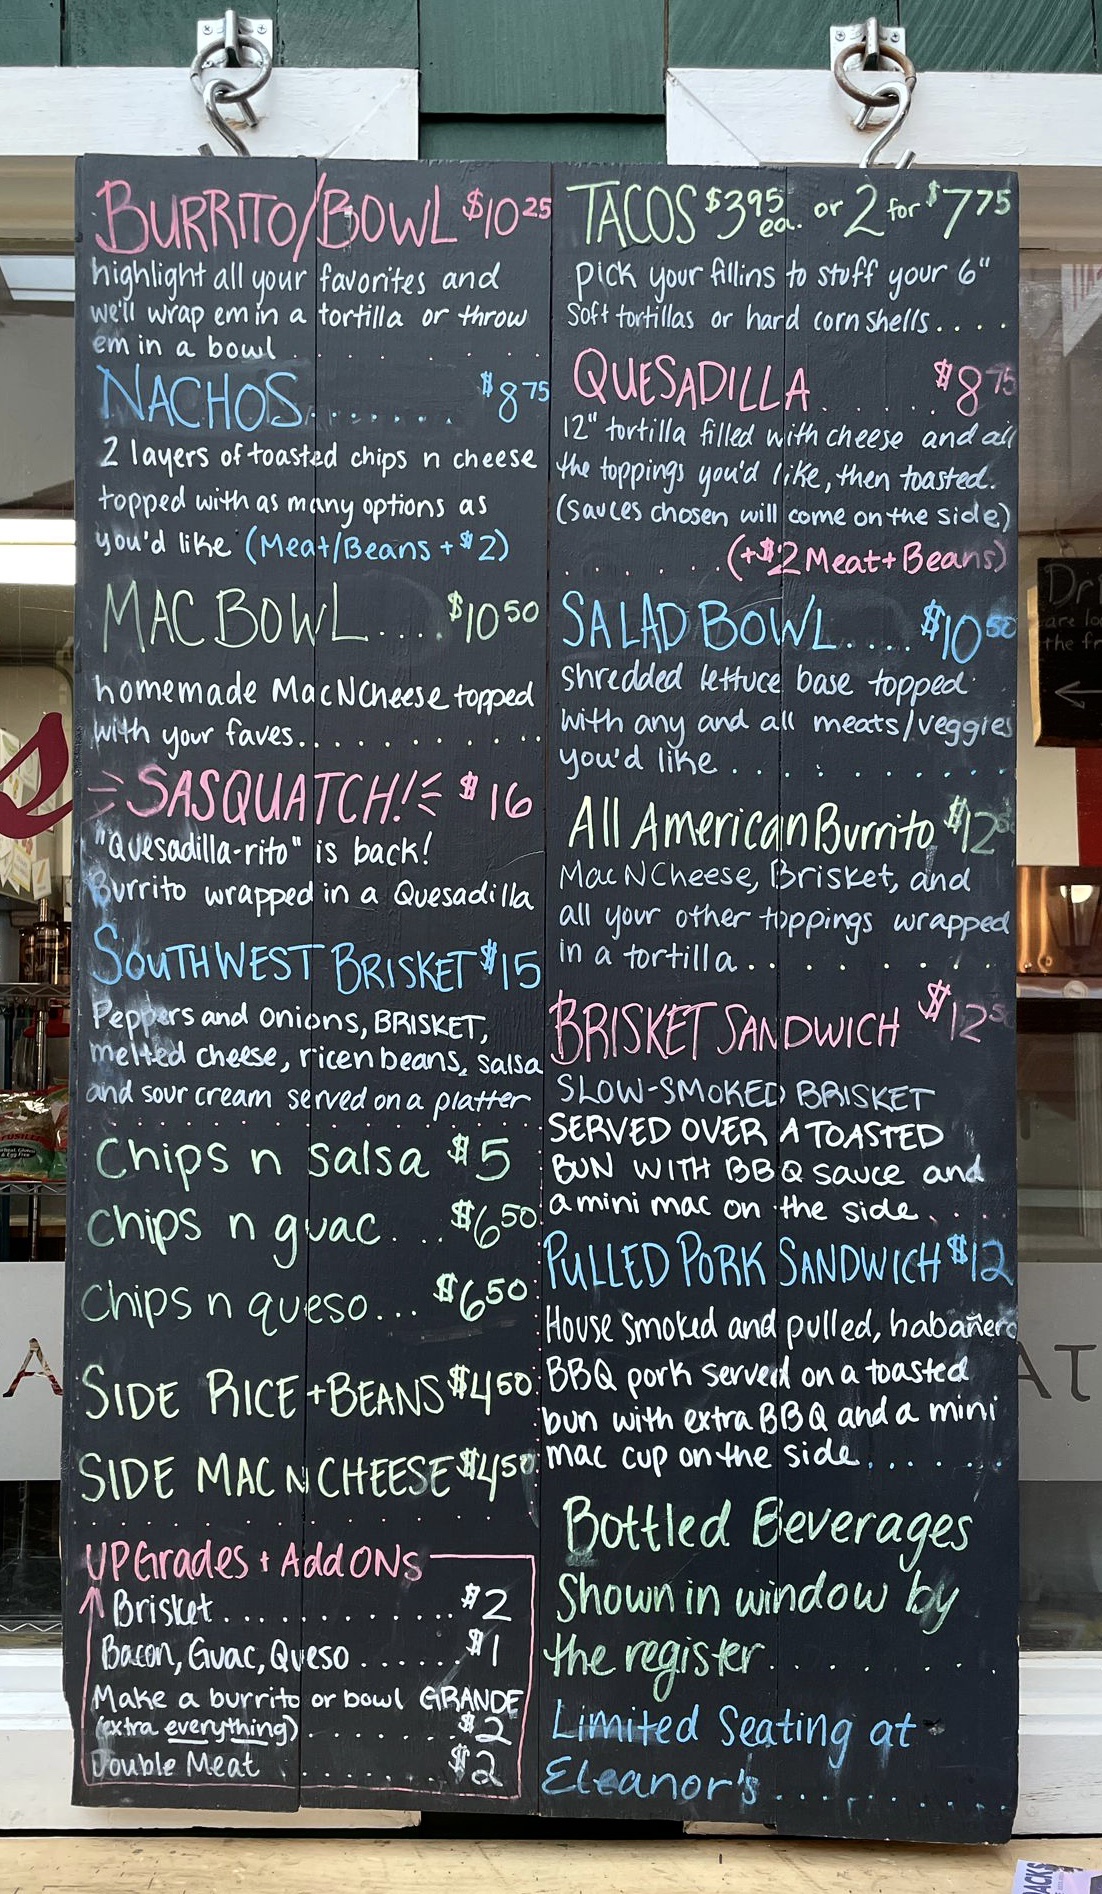 BURRITO/BOWL $10.25
highlight all your favorites and
we'll wrap em in a tortilla or throw
em in a bowl . . . . . .
NACHOS . . . . . . . $8.75
2 layers of toasted chips n cheese
topped with as many options as
you'd like (Meat/Beans + $2)
MAC BOWL .... $10.50
homemade MacNCheese topped
with your faves. . . . . . . . . . .
SASQUATCH! $16
"Quesadilla-rito" is back!
Burrito wrapped in a Quesadilla
SOUTHWEST BRISKET $15
Peppers and onions, BRISKET,
melted cheese, rice n beans, salsa
and sour cream served on a platter
Chips n salsa $5
chips n guac . . . $6.50
chips n queso... $6.50
SIDE RICE + BEANS $4.50
SIDE MAC N CHEESE $4.50
UPGrades + Add ONs
Brisket . . . . . . . . . . . . . $2
Bacon, Guac, Queso . . . . . . $1
Make a burrito or bowl GRANDE
(extra everything) . . . . . . . $2
Double Meat . . . . . . . $2
TACOS $3.95 ea. or 2 for $7.75
pick your fillins to stuff your 6"
Soft tortillas or hard corn shells....
QUESADILLA . . . . . . $8.75
12" tortilla filled with cheese and all
the toppings you'd like, then toasted.
(sauces chosen will come on the side)
. . . . . . (+$2 Meat + Beans)
SALAD BOWL.... $10.50
shredded lettuce base topped
with any and all meats/veggies
you'd like . . . . . . . . . .
All American Burrito $12.50
Mac N Cheese, Brisket, and
all your other toppings wrapped
in a tortilla . . . . . . . . .
BRISKET SANDWICH $12.50
SLOW-SMOKED BRISKET
SERVED OVER A TOASTED
BUN WITH BBQ sauce and
a mini mac on the side . . .
PULLED PORK SANDWICH $12
House Smoked and pulled, habañero
BBQ pork served on a toasted
bun with extra BBQ and a mini
mac cup on the side . . . . . .
Bottled Beverages
Shown in window by
the register . . . . . . . . .
Limited Seating at
Eleanor's . . . . . . . . . .
the fr
FUSILLI
A
AT
ACKS